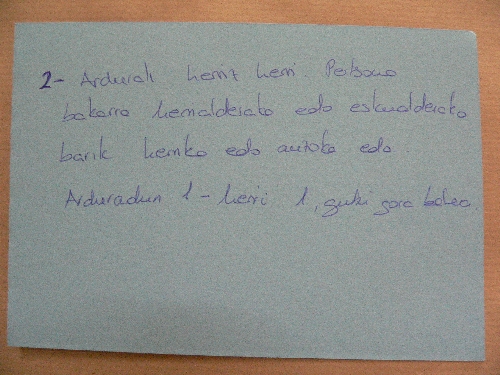 2- Ardurak herriz herri. Pertsona
bakarra herrialdeiako edo eskualdeiako
barik herriko edo auzoko edo.
Arduradun 1 - herri 1, gutxi gora behera